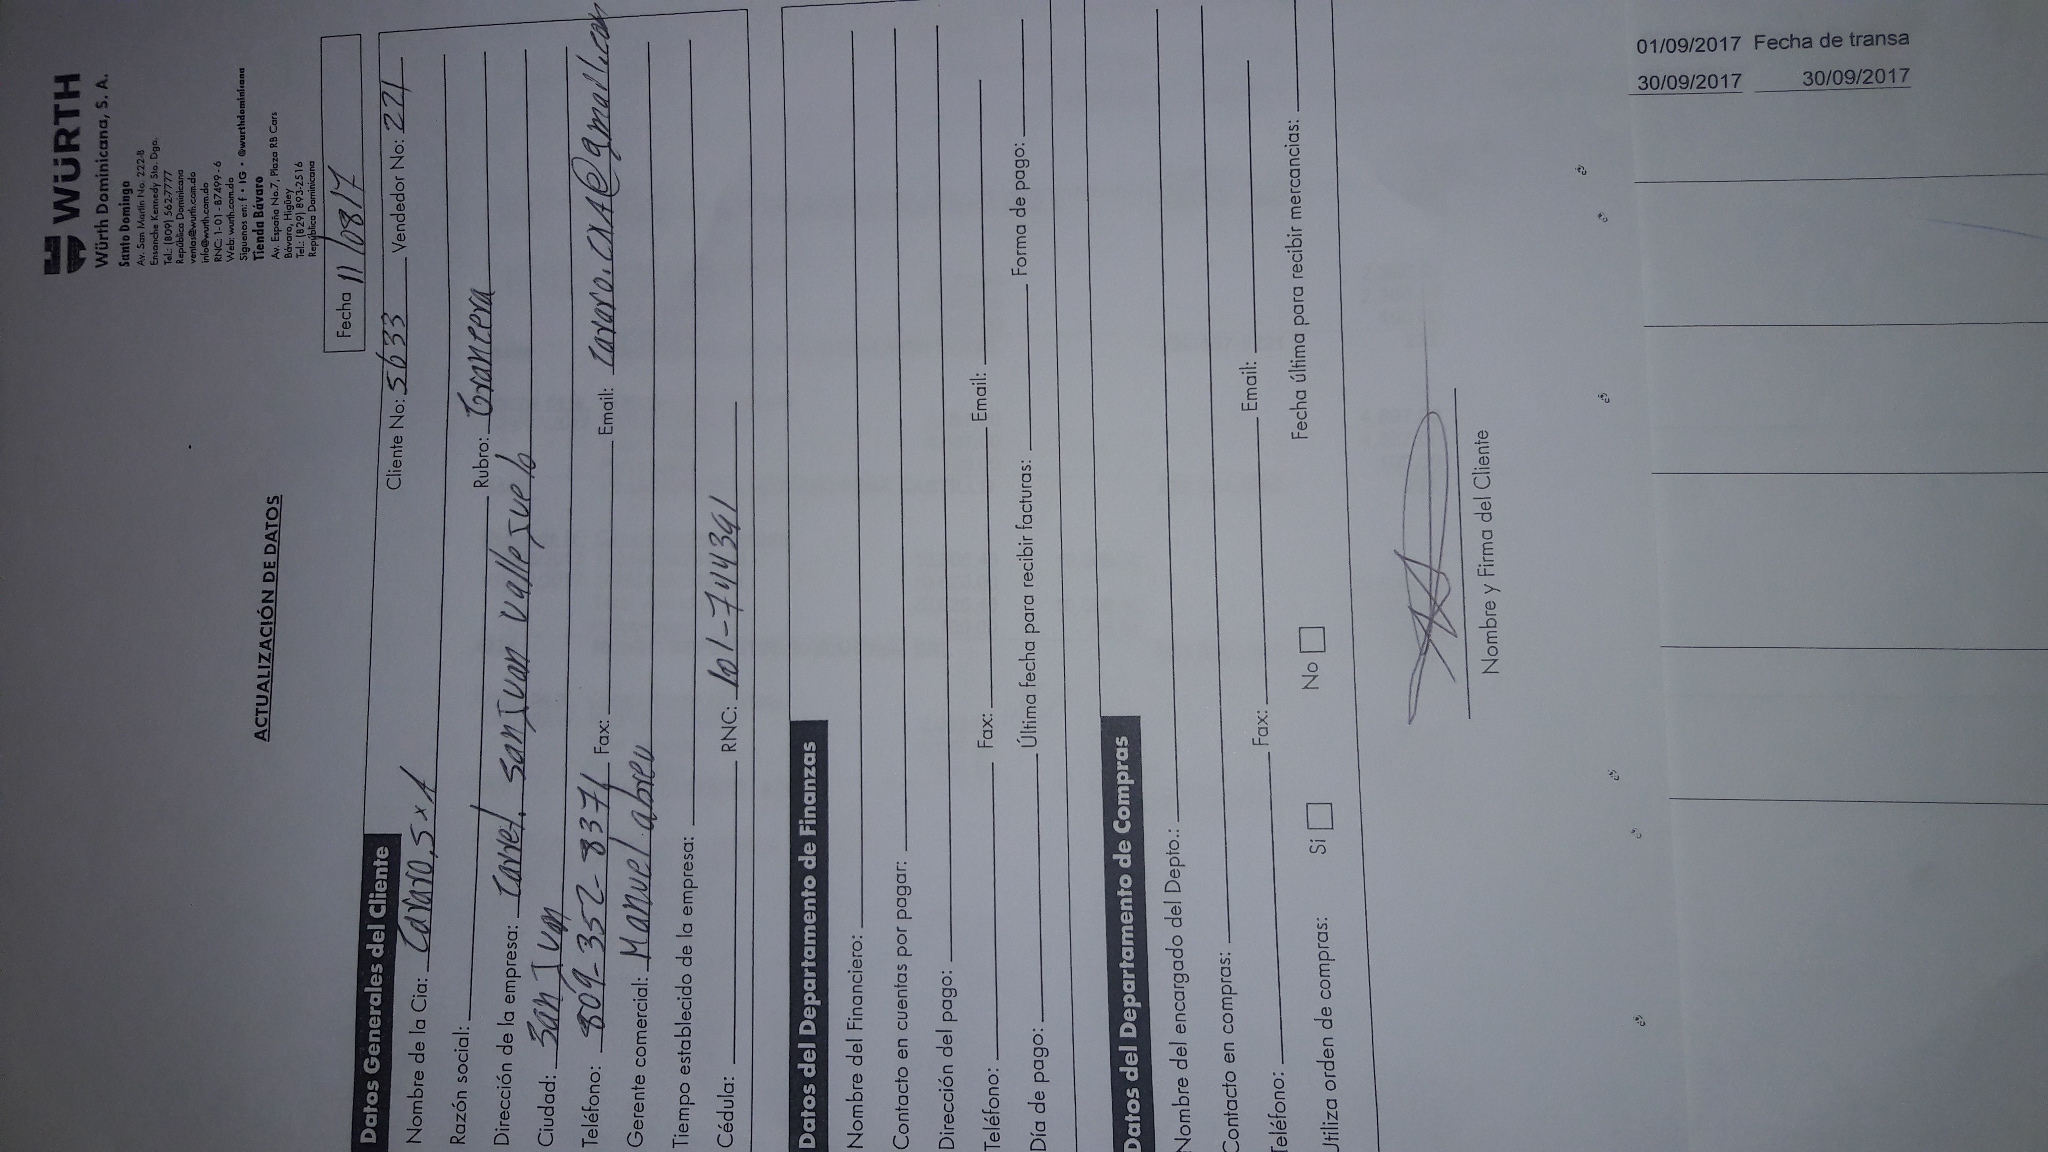 WÜRTH
Würth Dominicana, S. A.
Santo Domingo
Av. San Martín No. 222-B
Ensanche Kennedy Sto. Dgo.
Tel.: (809) 562-7777
República Dominicana
ventas@wurth.com.do
info@wurth.com.do
RNC: 1-01-87499-6
Web: wurth.com.do
Síguenos en: f • IG • @wurthdominicana
Tienda Bávaro
Av. España No.7, Plaza RB Cars
Bávaro, Higüey
Tel.: (829) 893-2516
República Dominicana
ACTUALIZACIÓN DE DATOS
Fecha 11/08/7
Datos Generales del Cliente
Cliente No: 5633 Vendedor No: 221
Nombre de la Cia: Cararo, SxA
Razón social: Rubro: Grancera
Dirección de la empresa: Carret. San Juan Vallejuelo
Ciudad: San Juan
Teléfono: 809-352-8371 Fax: Email: cararo.CXA@gmail.com
Gerente comercial: Manuel abreu
Tiempo establecido de la empresa:
Cédula: RNC: 101-744391
Datos del Departamento de Finanzas
Nombre del Financiero:
Contacto en cuentas por pagar:
Dirección del pago:
Teléfono: Fax: Email:
Día de pago: Última fecha para recibir facturas: Forma de pago:
Datos del Departamento de Compras
Nombre del encargado del Depto.:
Contacto en compras:
Teléfono: Fax: Email:
Utiliza orden de compras: Si No Fecha última para recibir mercancias:
Nombre y Firma del Cliente
01/09/2017 Fecha de transa
30/09/2017 30/09/2017